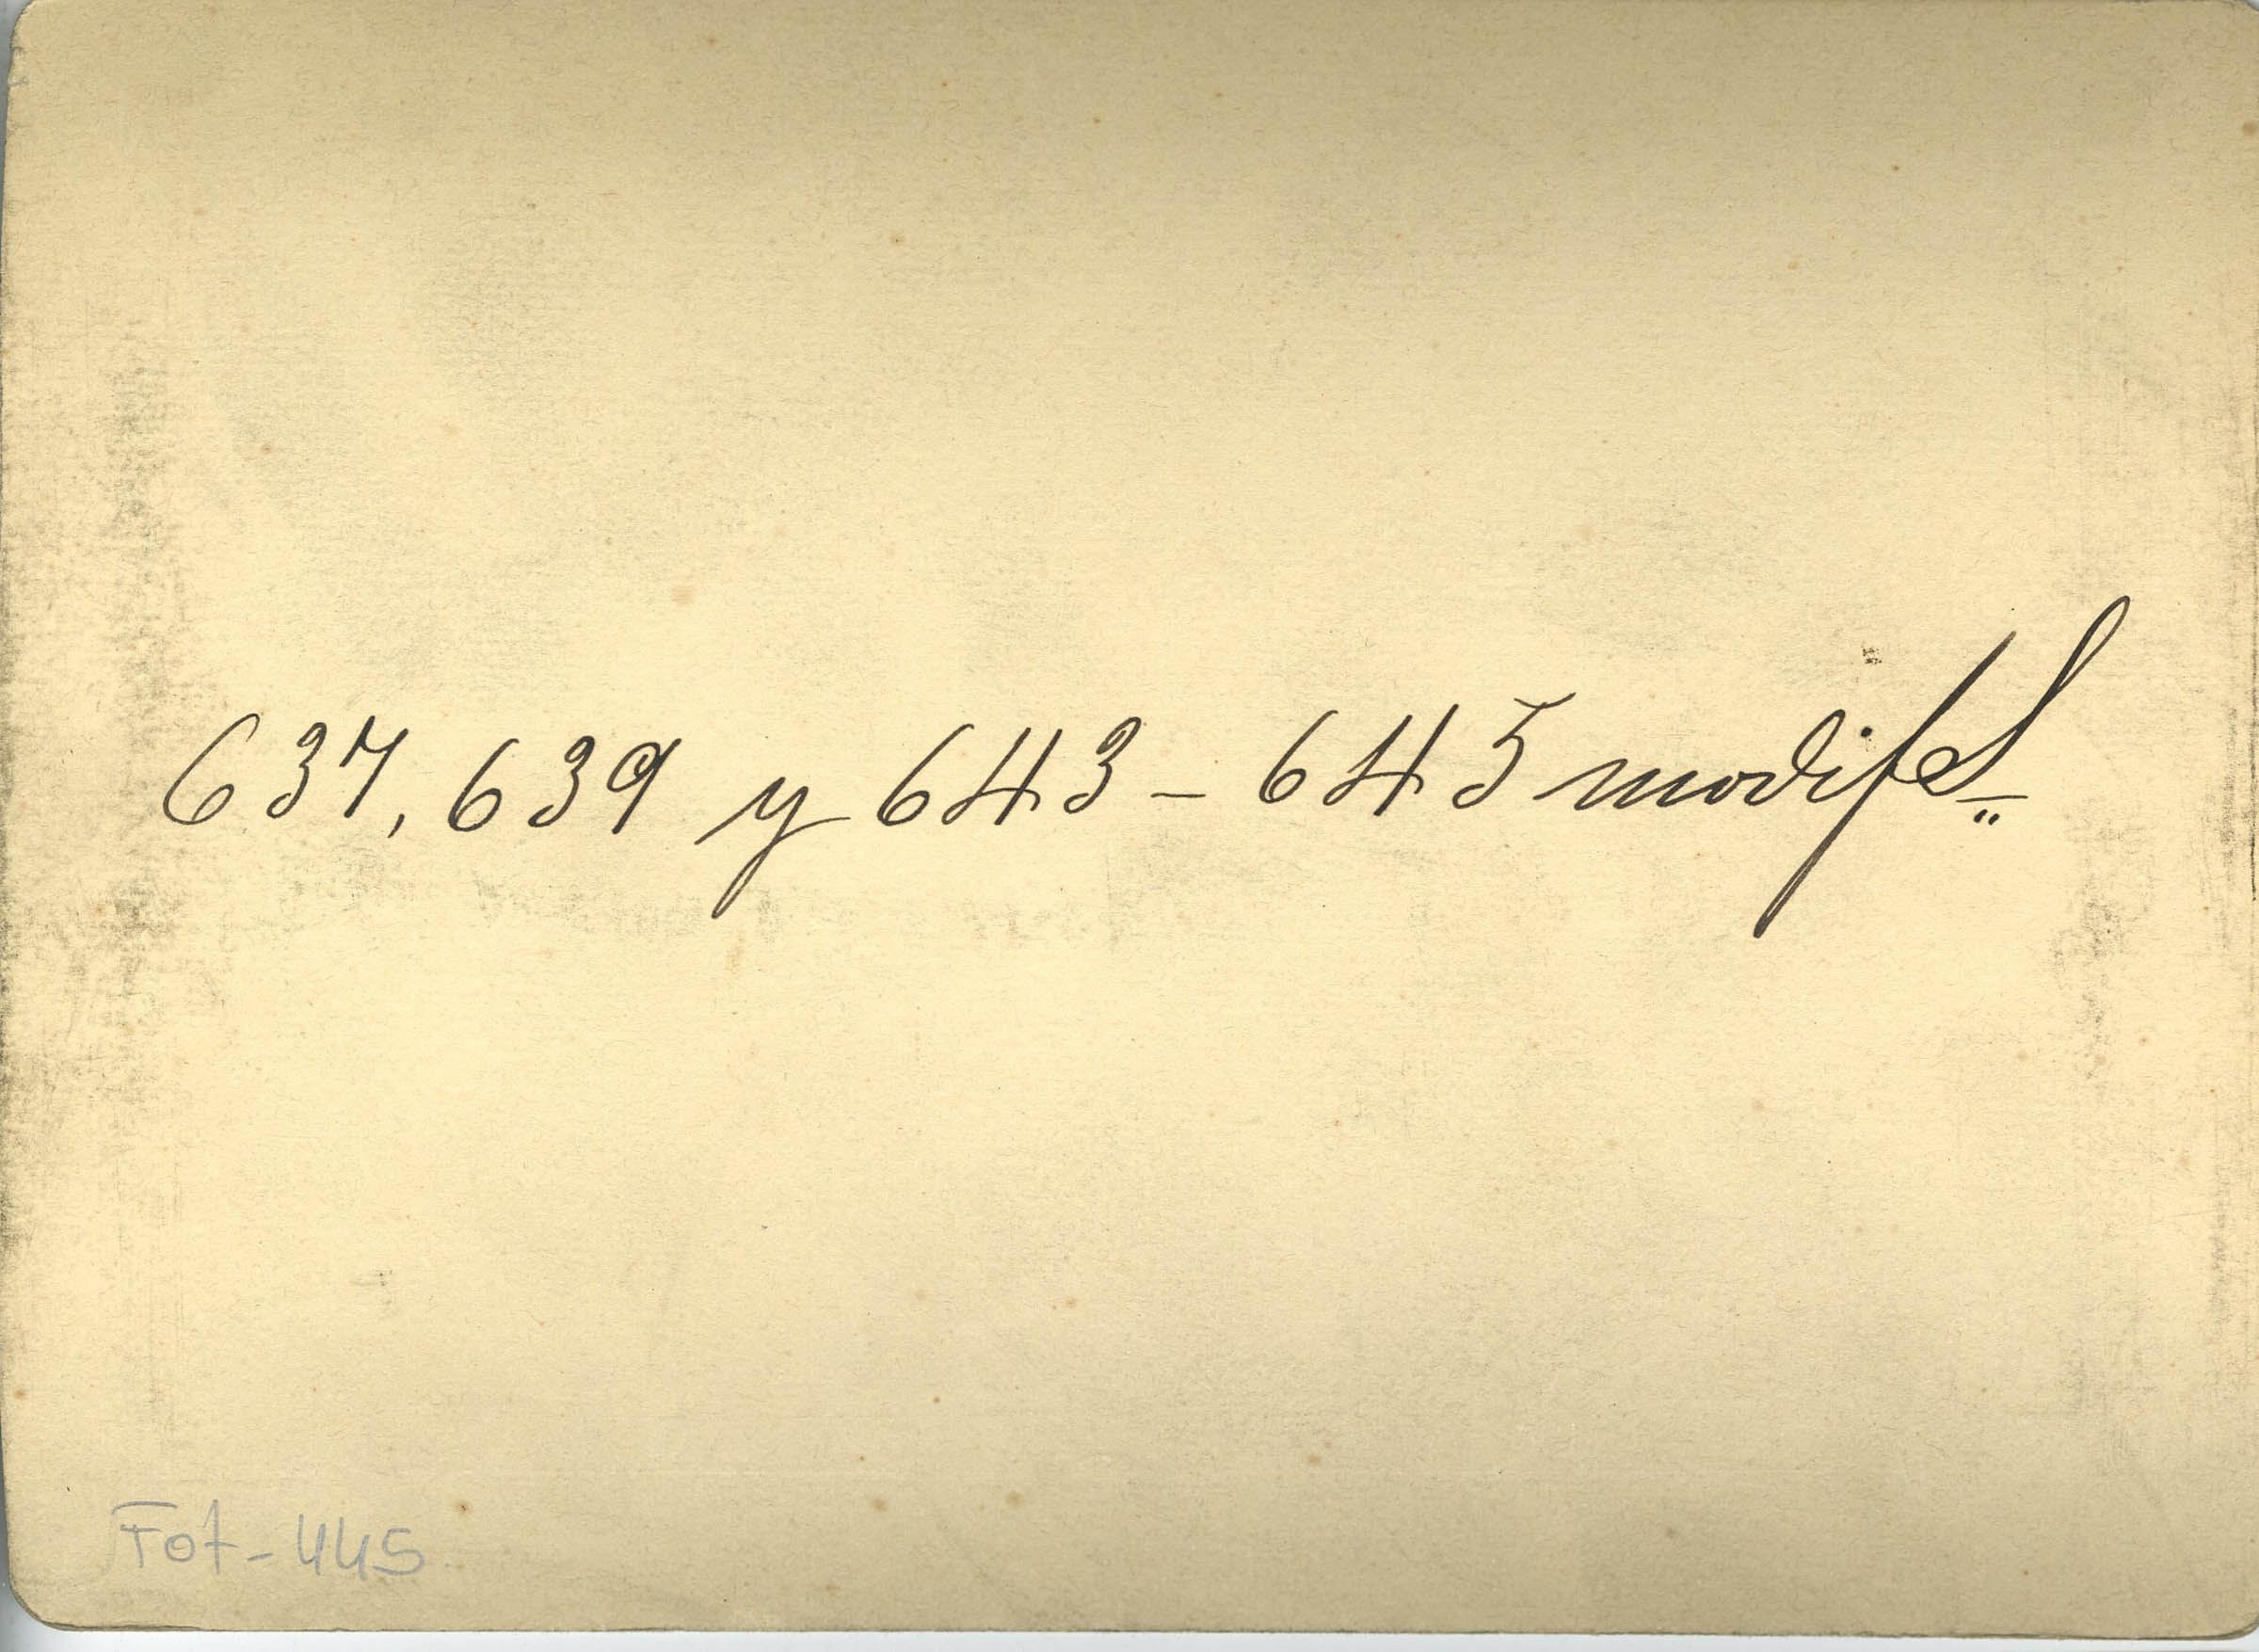 637, 639 y 643 - 645 modif
Fot - 445